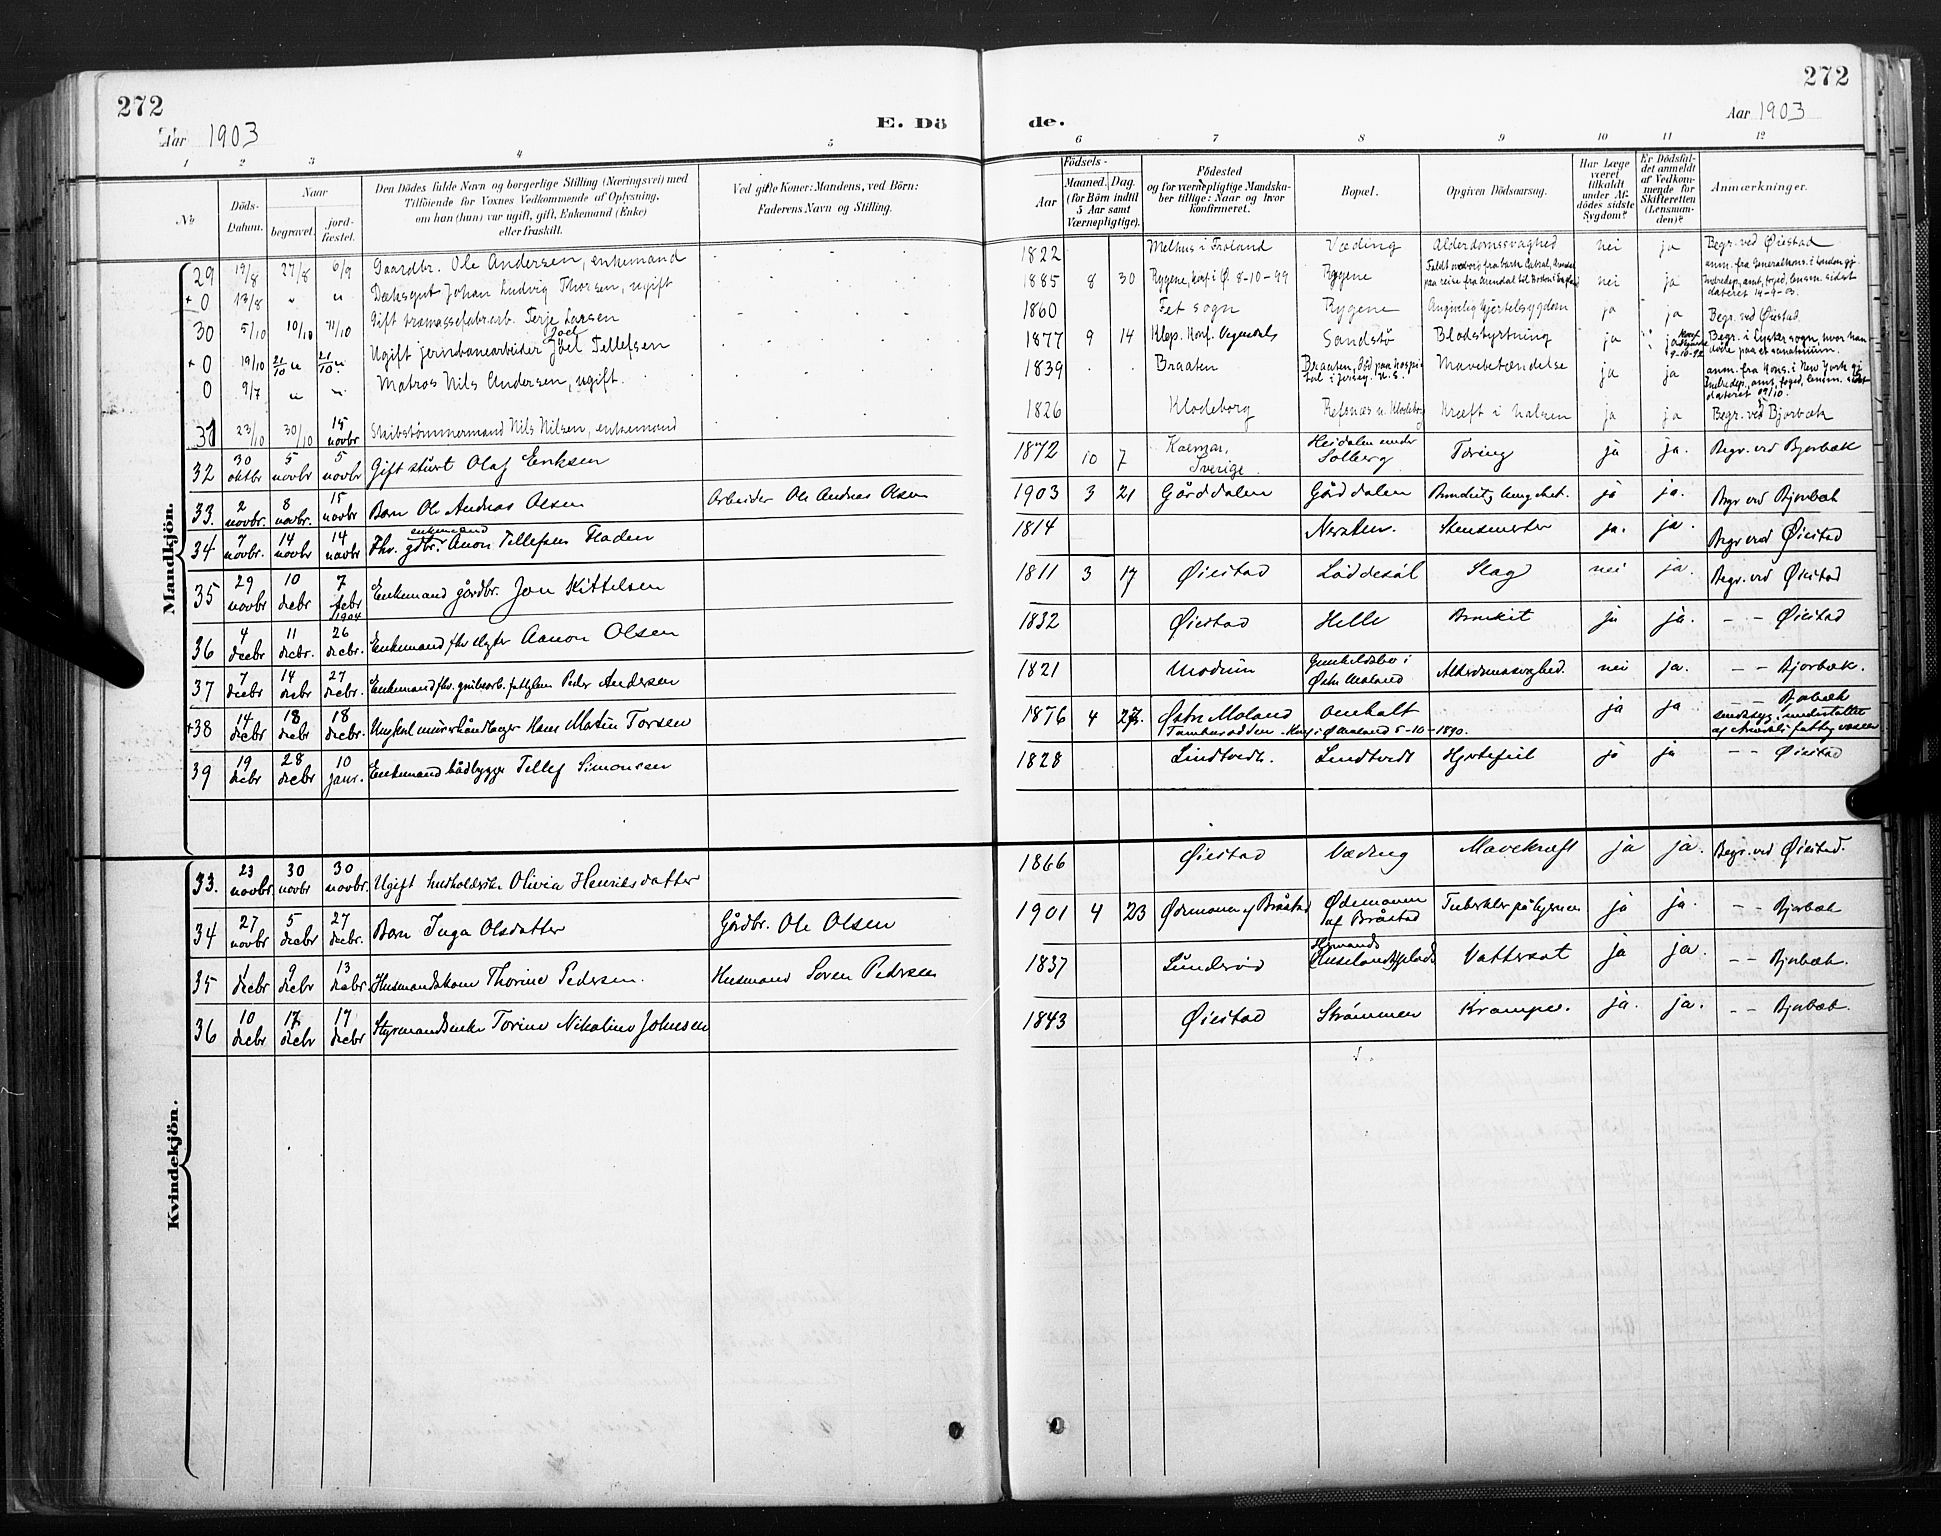 272
Aar 1903
E. Dö
de.
272
Aar 1903
1 2 3 4 5 6 7 8 9 10 11 12
No
Döds-Datum.
Naar
begravet.
jord-fæstet.
Den Dödes fulde Navn og borgerlige Stilling (Næringsvei) med
Tilföiende for Voxnes Vedkommende af Oplysning,
om han (hun) var ugift, gift, Enkemand (Enke)
eller fraskilt.
Ved gifte Koner: Mandens, ved Börn:
Faderens Navn og Stilling.
Födsels-
Aar
Maaned. Dag.
(for Börn indtil
5 Aar samt
Værnepligtige).
Födested
og for værnepligtige Mandska-
ber tillige: Naar og hvor
konfirmeret.
Bopæl.
Opgiven Dödsaarsag.
Har Læge
været
tilkaldt
under Af-
dödes sidste
Sygdom?
Er Dödsfal-
det anmeldt
af Vedkom-
mende for
Skifteretten
(Lensman-
den)?
Anmærkninger.
Mandkjön.
29 19/8 27/8 6/9 Gaardbr. Ole Andersen, enkemand 1822 Melhus i Froland Væding Alderdomssvaghed nei ja Begr. ved Øiestad
+ 0 13/8 " " Dæksgut Johan Ludvig Thorsen, ugift 1885 8 30 Rygene, konf. i Ø. 8-10-99 Rygene nei ja
30 5/10 10/10 11/10 Gift træmassefabr.arb. Terje Larsen 1860 Fet sogn Rygene Angivelig hjertesygdom ja ja Begr. ved Øiestad.
+ 0 19/10 21/10 21/10 Ugift jernbanearbeider Joel Tellefsen 1877 9 14 Klep. Konf. Vegusdal Sandstø Blodstyrtning ja ja Begr. i Lyster sogn, hvor han døde paa et sanatorium.
0 9/7 " " Matros Nils Andersen, ugift. 1839 Braaten Braaten, død paa hospital i Jersey. U.S. Mavebetændelse ja ja anm. fra kons. i New York
31 23/10 30/10 15 novbr Skibstømmermand Nils Nilsen, enkemand 1826 Klodeborg Refsnæs u. Klodeborg Kræft i halsen ja ja Begr. ved Bjorbæk
32 30 oktbr 5 novbr 5 novbr Gift Olaf Eriksen 1872 10 7 Kalmar, Sverige. Heidalen under Solberg Tæring ja ja. Begr. ved Bjorbæk
33. 2 novbr. 8 novbr. 15 novbr Barn Ole Andreas Olsen Arbeider Ole Andreas Olsen 1903 3 21 Gårddalen Gårddalen ja ja. Begr ved Bjorbæk
34 7 novbr. 14 novbr 14 novbr Fhv. gdbr. enkemand Anon Tellefsen Fladen 1814 ja. ja. Begr ved Øiestad
35 29 novbr 10 debr 7 febr 1904 Enkemand gårdbr. Jon Kittelsen 1811 3 17 Øiestad Løddesøl Slag nei ja. Begr. ved Øiestad
36 4 decbr 11 decbr. 26 decbr. Enkemand fhv. Aanon Olsen 1832 Øiestad Helle Bronkit ja ja. – – Øiestad
37 7 decbr 14 decbr 27 decbr. Enkemand fhv. grubearb. Peder Andersen 1821 Modum Gunhildsbo i Østre Moland Alderdomssvaghed. nei ja. – – Bjorbæk.
+38 14 decbr 18 decbr 18 decbr. Ungkarl murerhåndlanger Hans Martin Torsen 1876 4 27 Østre Moland Omholt ja ja – – Bjorbæk
Konf. i Ø Moland 5-10-1890.
39 19 decbr 28 decbr 10 janr. Enkemand bådbygger Tellef Simonsen 1828 Lindtvedt. Lindtvedt Hjertefeil ja ja – – Øiestad
Kvindekjön.
33. 23 novbr. 30 novbr 30 novbr. Ugift husholderske Olivia Henriksdatter 1866 Øiestad Væding Mavekræft ja ja. Begr. ved Øiestad.
34 27 novbr 5 decbr 27 decbr. Barn Inga Olsdatter Gårdbr. Ole Olsen 1901 4 23 Ødemonen af Bråstad Ødemonen af Bråstad Tuberkler på hjernen ja ja. – – Bjorbæk
35 1 decbr 9 decbr 13 decbr. Husmandskone Thorine Pedersen. Husmand Soren Pedersen 1837 Lunderød Vattersot ja ja. – – Bjorbæk.
36 10 decbr 17 decbr 17 decbr Styrmandsenke Torine Nikoline Johnsen 1843 Øiestad Strømmen Kramper. ja. ja. – – Bjorbæk.